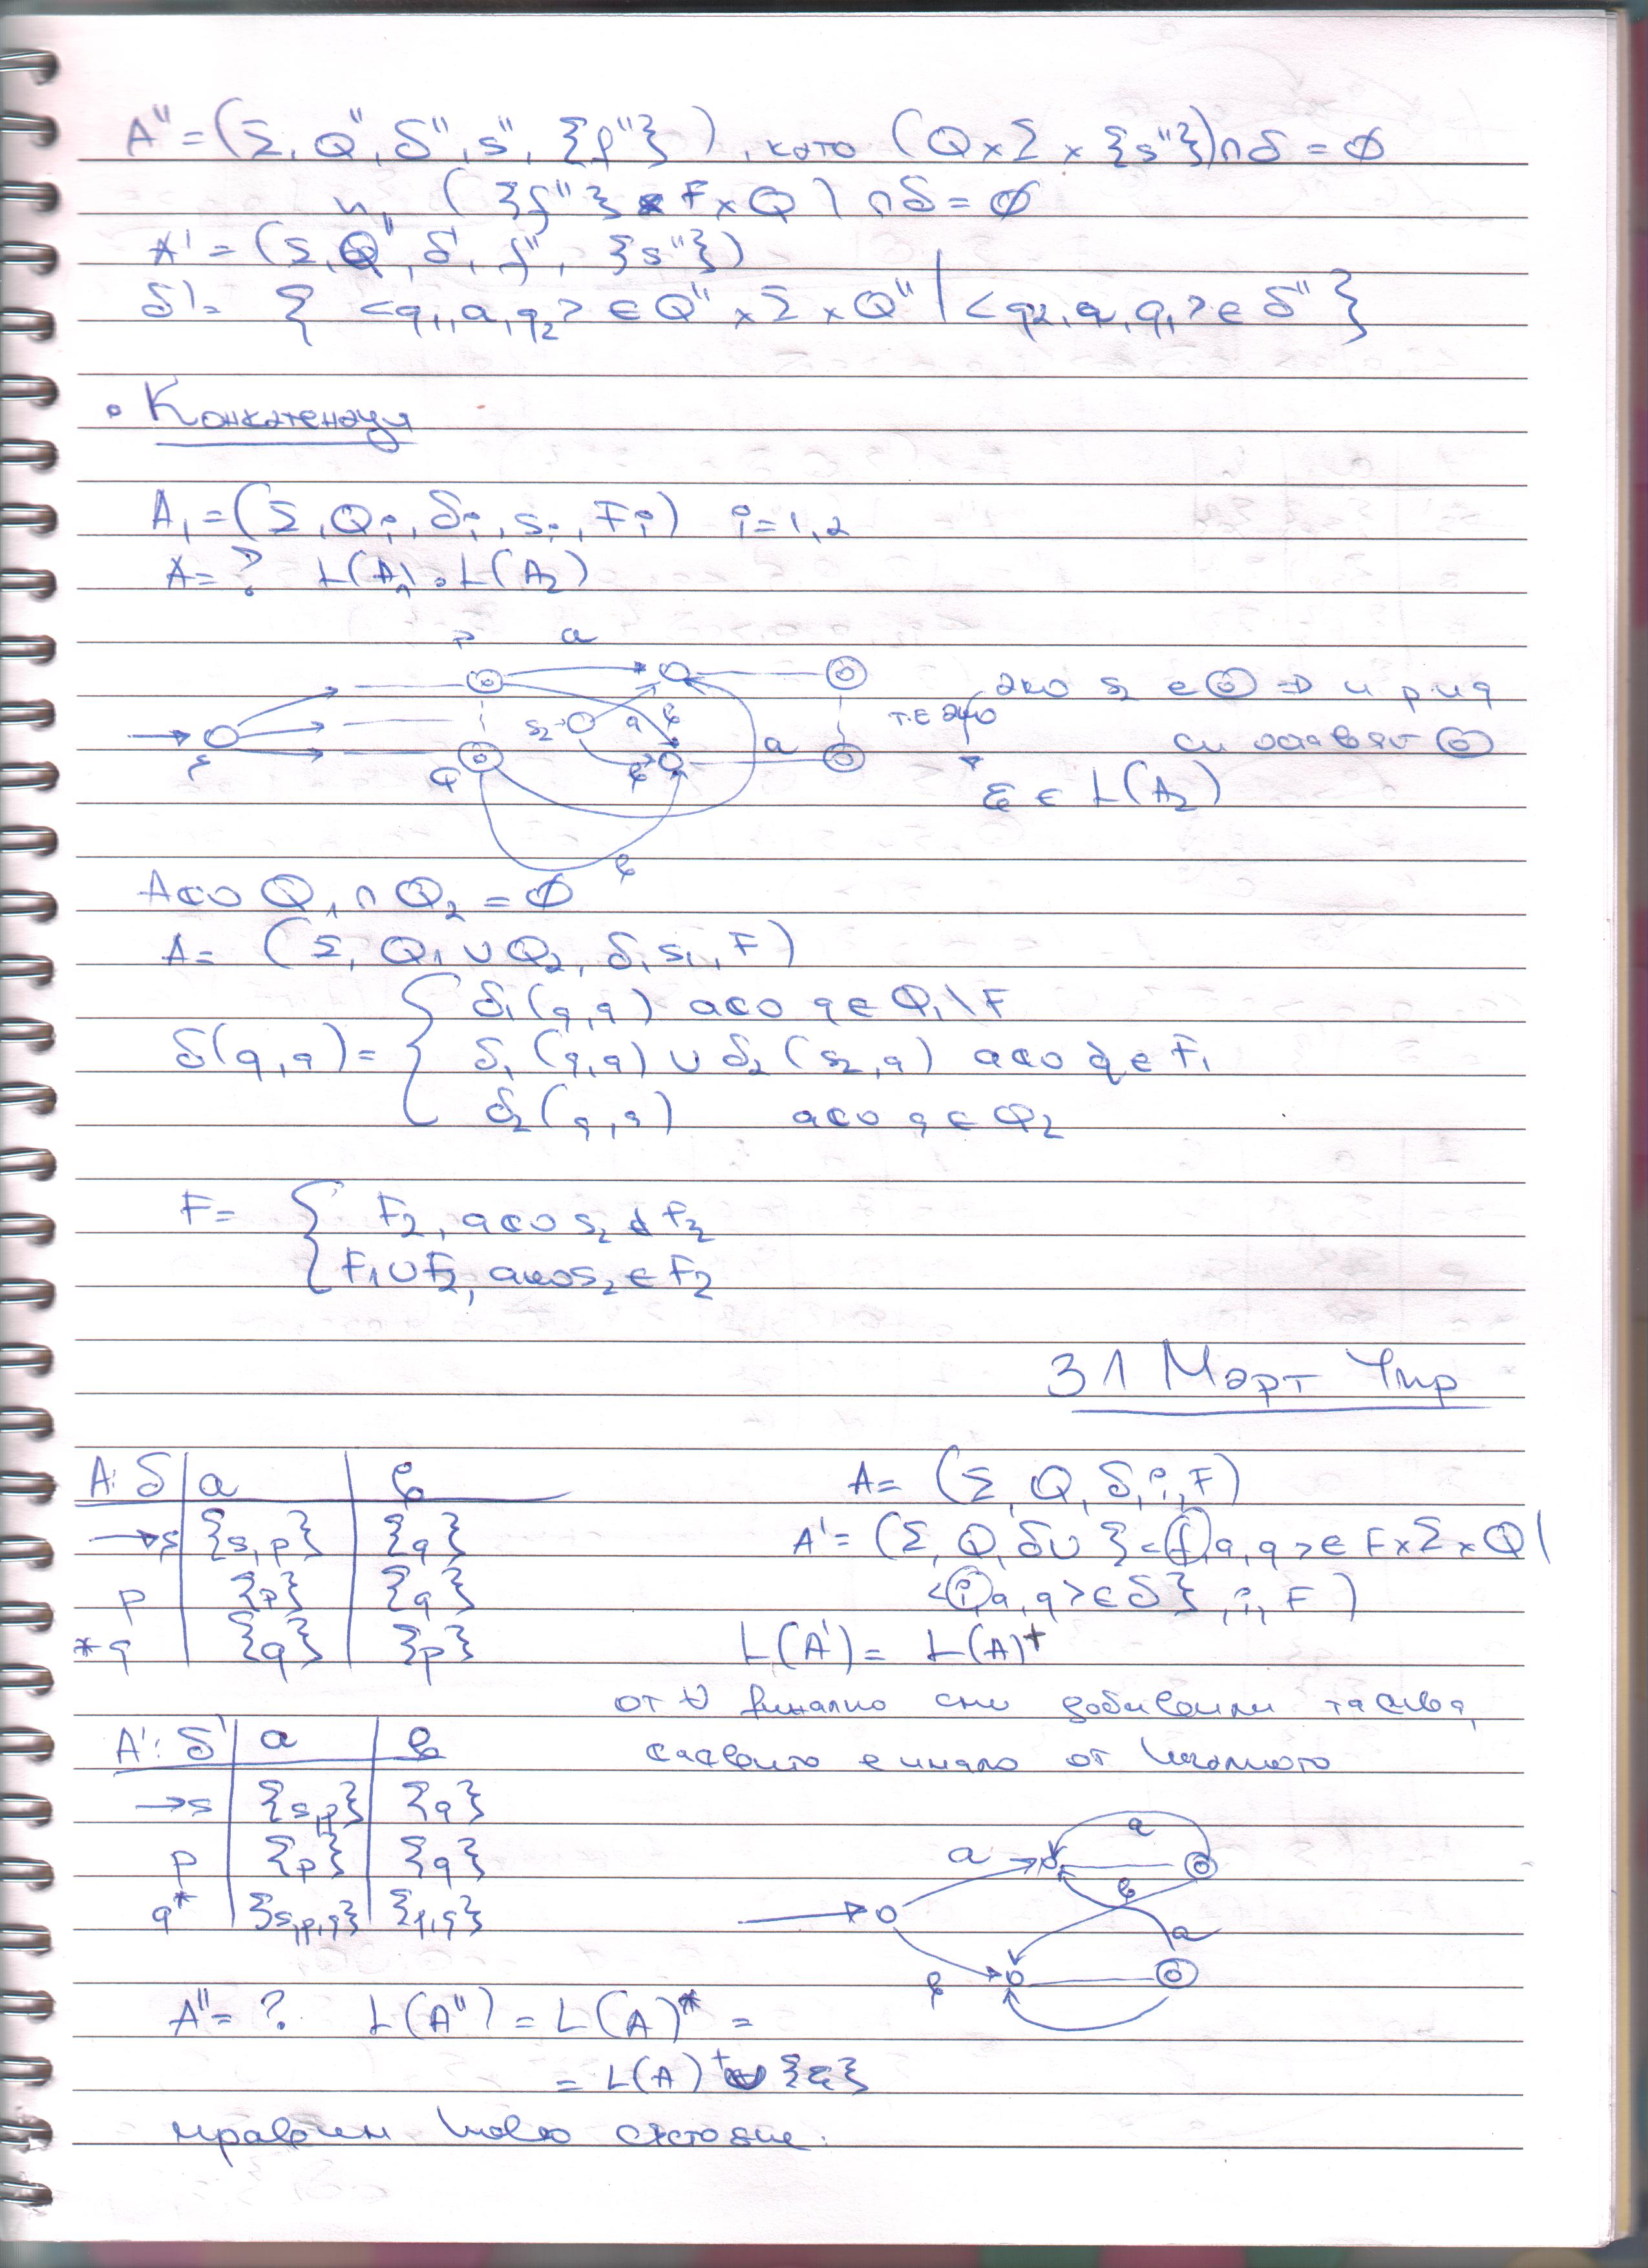 A'' = (Σ, Q'', δ'', s'', {f''}), като (Q × Σ × {s''}) ∩ δ = ∅
и ({f''} × F × Q) ∩ δ = ∅
A' = (Σ, Q'', δ', f'', {s''})
δ' = { <q₁, a, q₂> ∈ Q'' × Σ × Q'' | <q₂, a, q₁> ∈ δ'' }
• Конкатенация
A₁ = (Σ, Qᵢ, δᵢ, sᵢ, Fᵢ) i = 1,2
A = ? L(A₁) . L(A₂)
p a
ако s₂ е ⊚ ⇒ и p и q
s₂ a b т.е ако
си остават ⊚
q b a
ε ∈ L(A₂)
b
Ако Q₁ ∩ Q₂ = ∅
A = (Σ, Q₁ ∪ Q₂, δ, s₁, F)
δ₁(q,a) ако q ∈ Q₁\F
δ(q,a) = { δ₁(q,a) ∪ δ₂(s₂,a) ако q ∈ F₁
δ₂(q,a) ако q ∈ Q₂
F = { F₂, ако s₂ ∉ F₂
F₁ ∪ F₂, ако s₂ ∈ F₂
31 Март Упр
A: δ | a | b
→s | {s,p} | {q}
p | {p} | {q}
*q | {q} | {p}
A = (Σ, Q, δ, i, F)
A' = (Σ, Q, δ ∪ { <f, a, q> ∈ F × Σ × Q |
<i, a, q> ∈ δ}, i, F)
L(A') = L(A)⁺
от ∀ финално сме добавили такива,
каквито е имало от началното
A': δ' | a | b
→s | {s,p} | {q}
p | {p} | {q}
q* | {s,p,q} | {p,q}
a
a
b
a
b
A'' = ? L(A'') = L(A)* =
= L(A)⁺ ∪ {ε}
правим ново състояние.